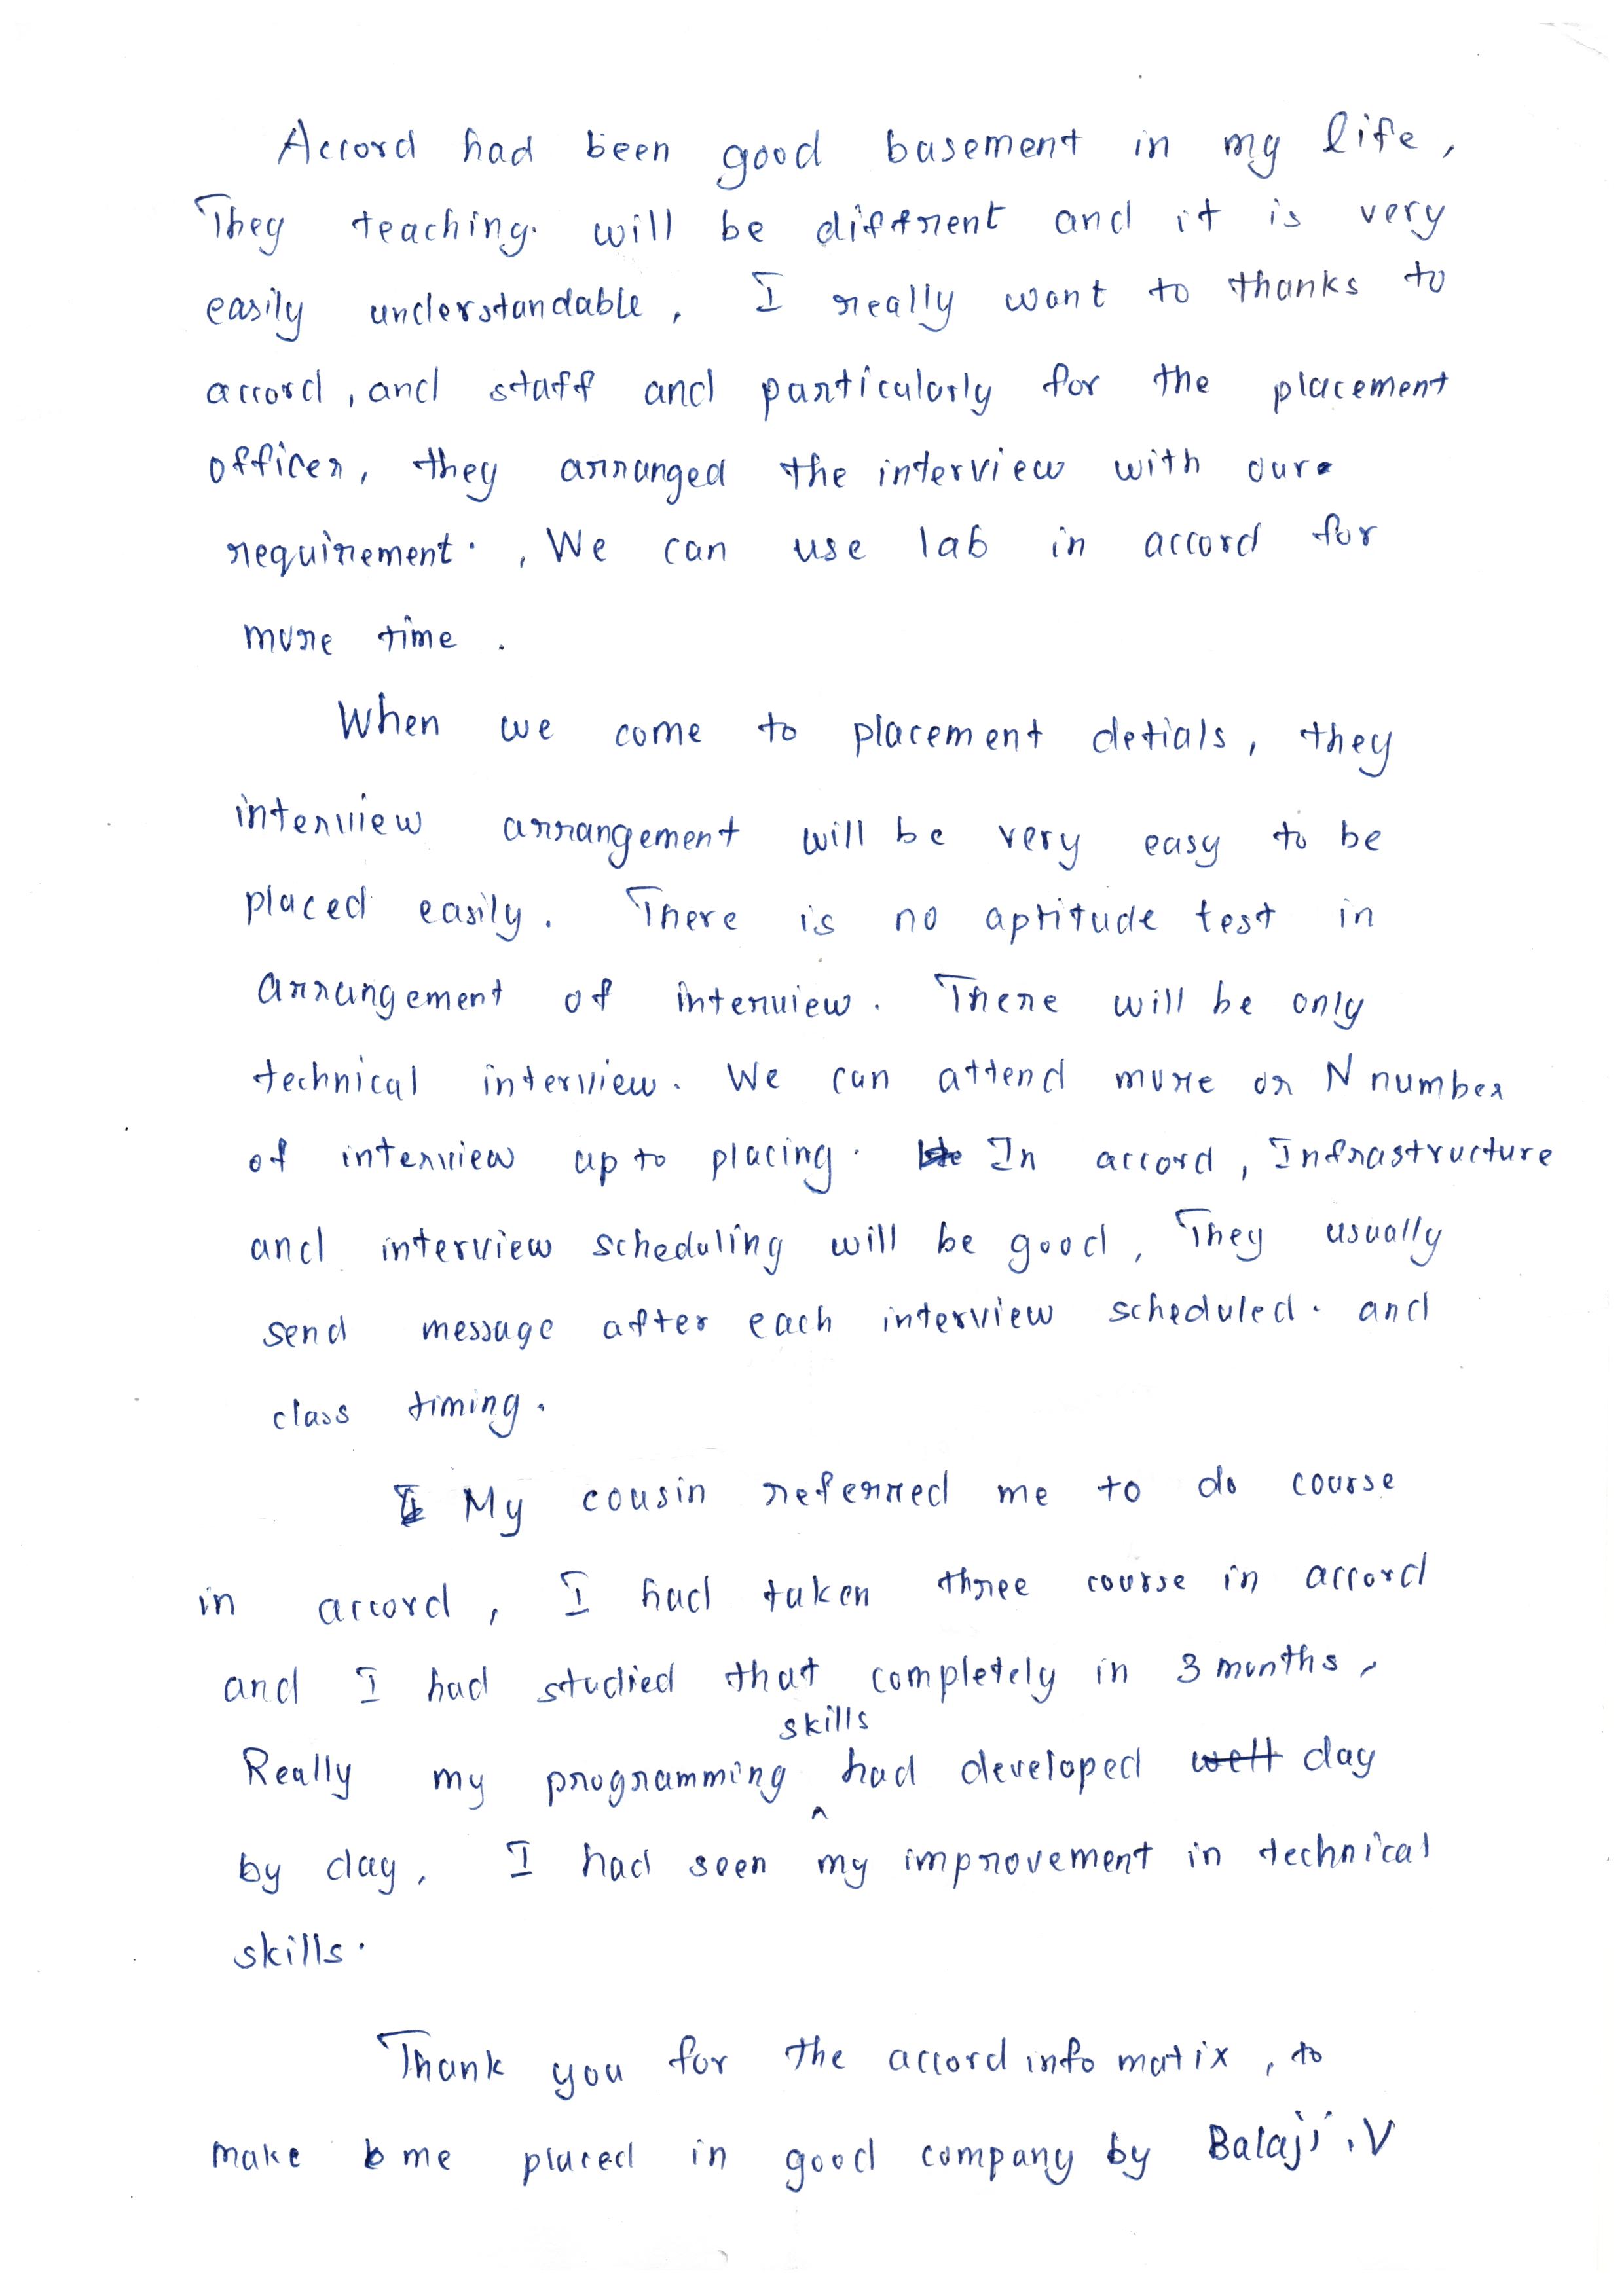 Accord had been good basement in my life,
They teaching. will be diffrent and it is very
easily understandable, I really want to thanks to
accord, and staff and particularly for the placement
officer, they arranged the interview with our
requirement. , We can use lab in accord for
more time .
When we come to placement detials, they
interview arrangement will be very easy to be
placed easily. There is no aptitude test in
arrangement of interview. There will be only
technical interview. We can attend more or N number
of interview up to placing. In accord, Infrastructure
and interview scheduling will be good, They usually
send message after each interview scheduled. and
class timing.
My cousin referred me to do course
in accord, I had taken three course in accord
and I had studied that completely in 3 months,
Really my programming skills had developed day
by day, I had seen my improvement in technical
skills.
Thank you for the accord info matix, to
make me placed in good company by Balaji.V